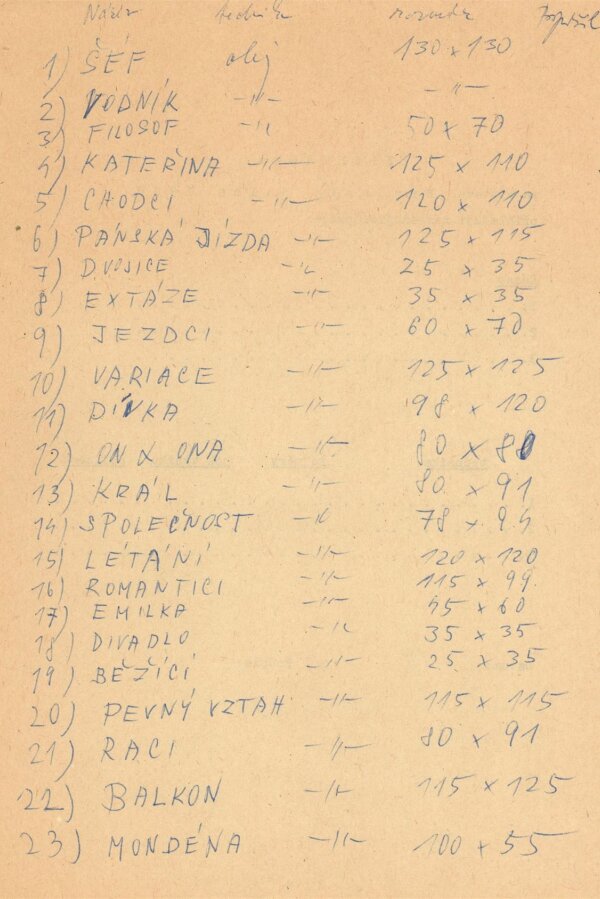 Název technika rozměr
1) ŠÉF olej 130 x 130
2) VODNÍK —"— —"—
3) FILOSOF —"— 50 x 70
4) KATEŘINA —"— 125 x 110
5) CHODCI —"— 120 x 110
6) PÁNSKÁ JÍZDA —"— 125 x 115
7) DVOJICE —"— 25 x 35
8) EXTÁZE —"— 35 x 35
9) JEZDCI —"— 60 x 70
10) VARIACE —"— 125 x 125
11) DÍVKA —"— 98 x 120
12) ON & ONA —"— 80 x 80
13) KRÁL —"— 80 x 91
14) SPOLEČNOST —"— 78 x 94
15) LÉTÁNÍ —"— 120 x 120
16) ROMANTICI —"— 115 x 99
17) EMILKA —"— 45 x 60
18) DIVADLO —"— 35 x 35
19) BĚŽÍCÍ —"— 25 x 35
20) PEVNÝ VZTAH —"— 115 x 115
21) RACI —"— 80 x 91
22) BALKON —"— 115 x 125
23) MONDÉNA —"— 100 x 55